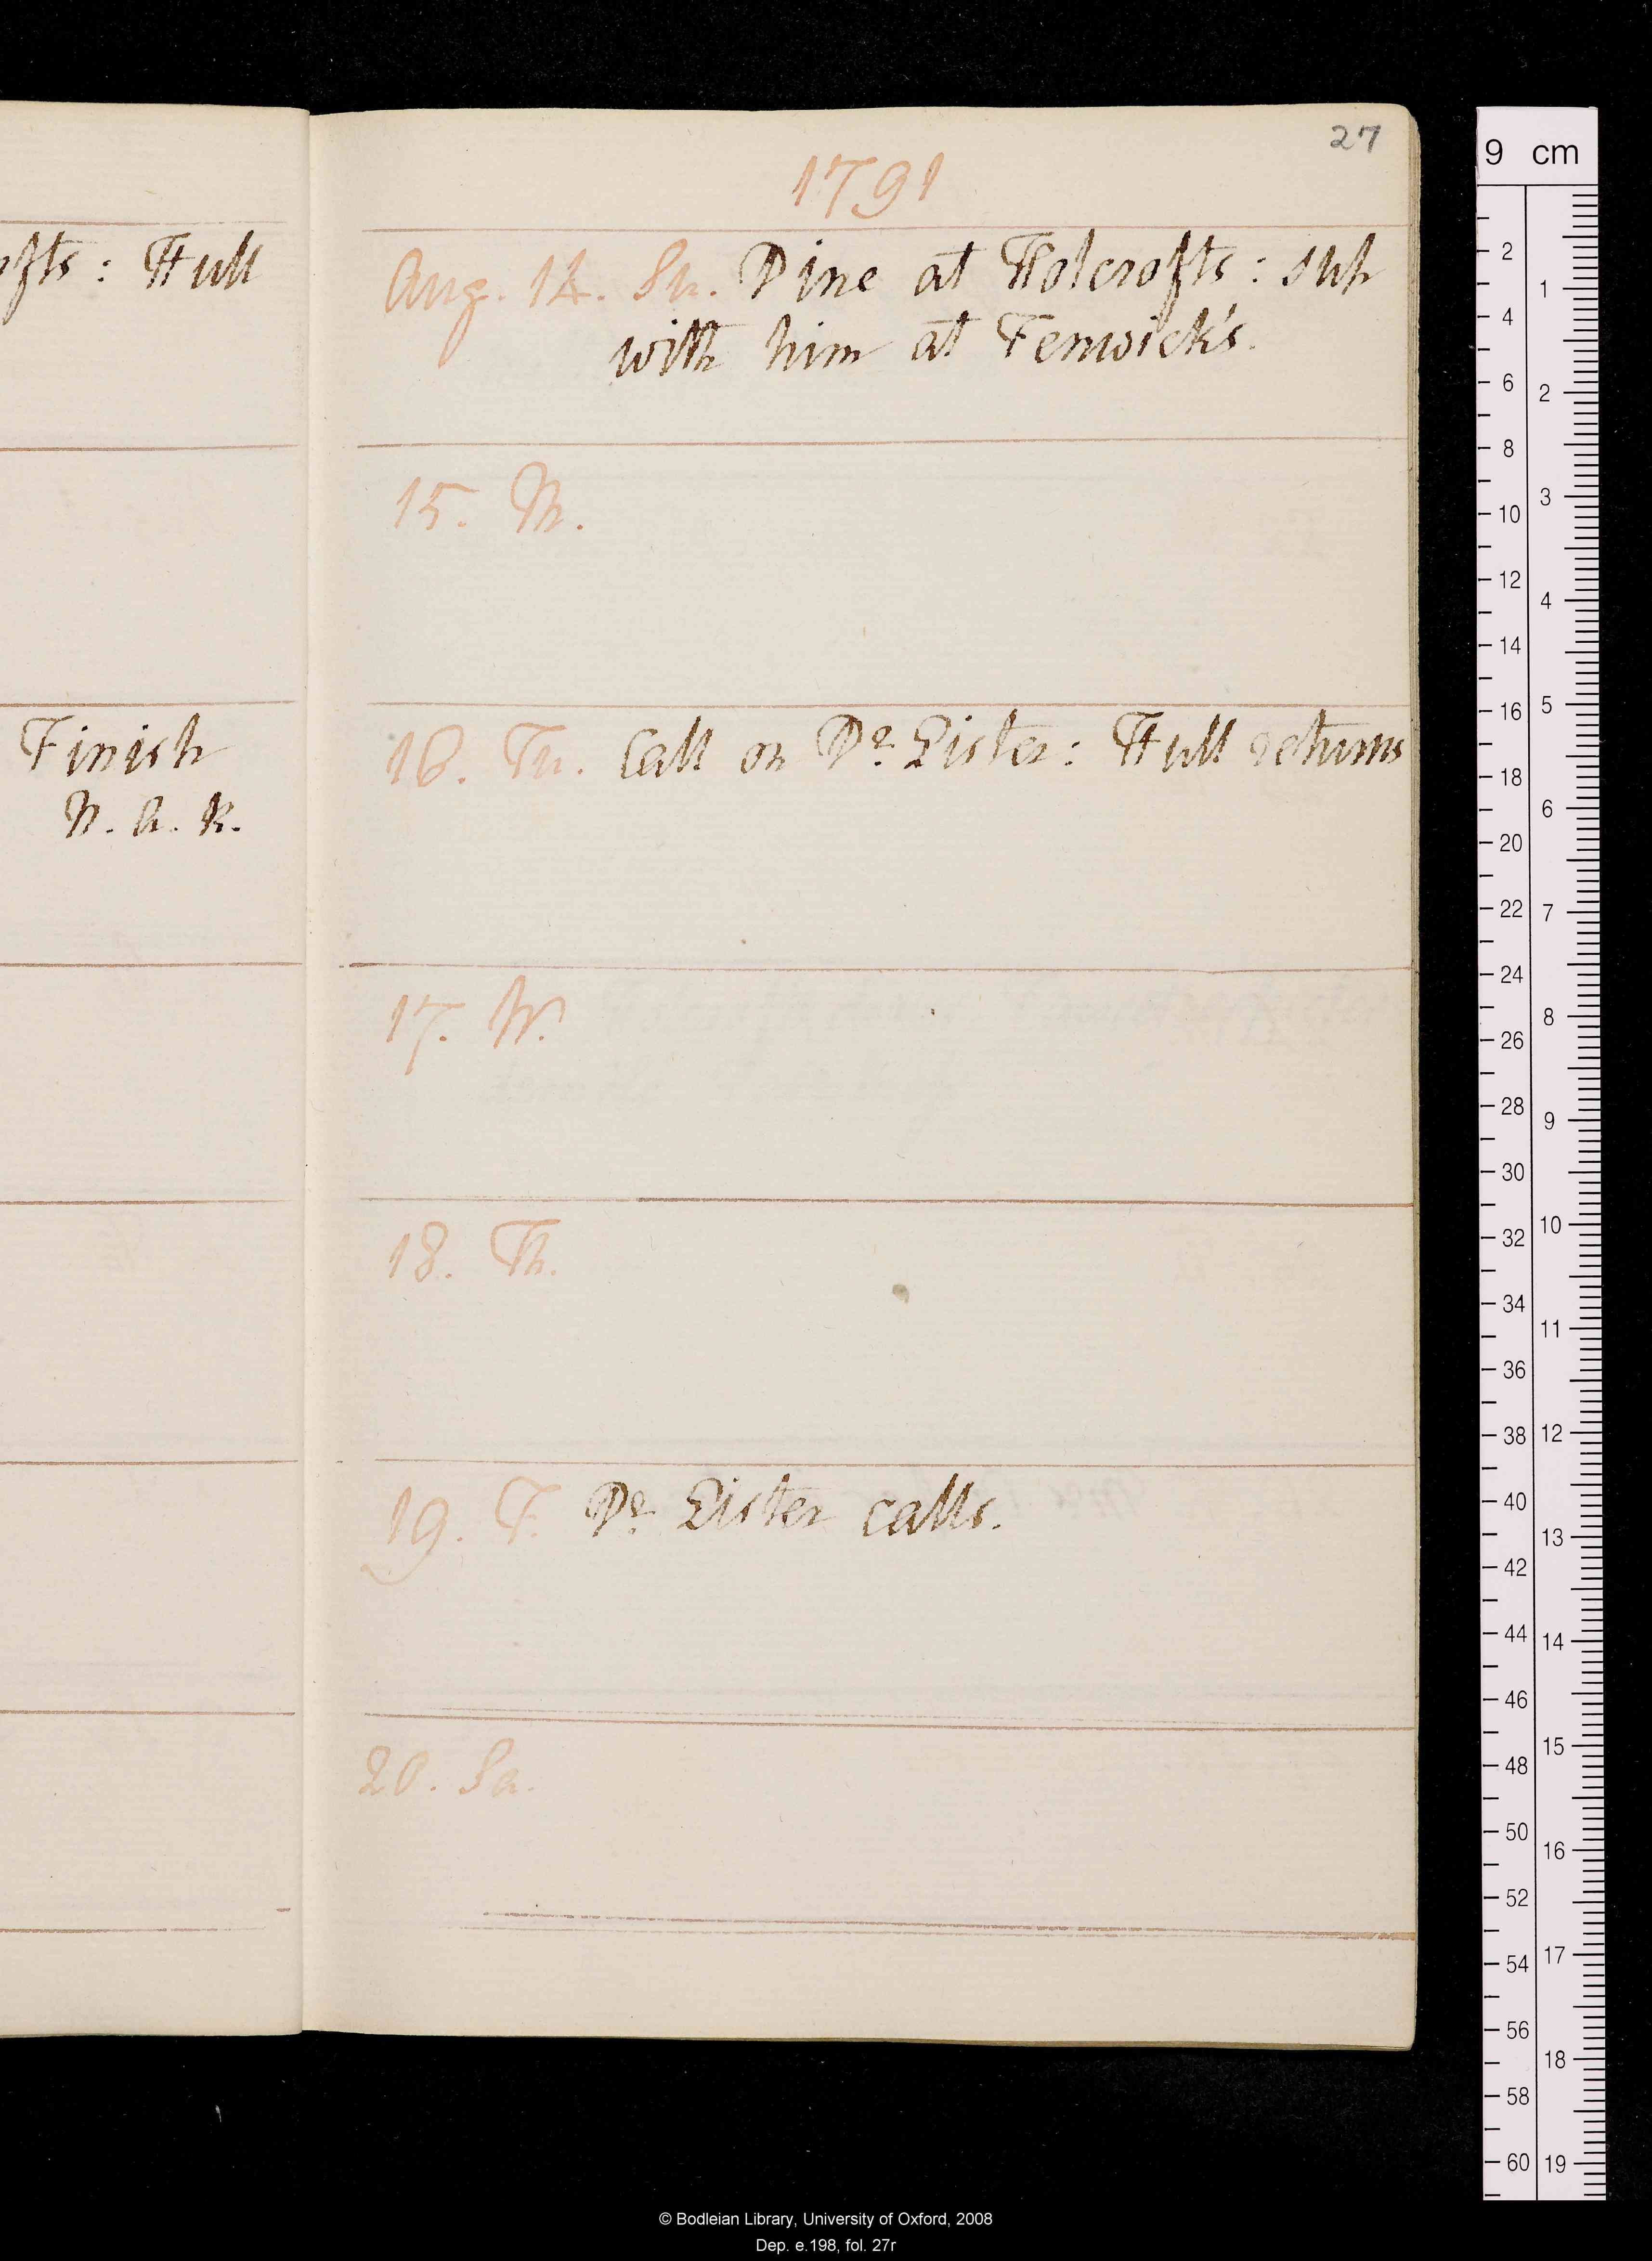 27
1791
Aug. 14. Su. Dine at Holcrofts: sup
with him at Fenwick's.
15. M.
16. Tu. Call on Dr. Lister: Hull returns
17. W.
18. Th.
19. F. Dr. Lister calls.
20. Sa.
fts: Hull
Finish
N. A. R.
9 cm
2
4
6
8
10
12
14
16
18
20
22
24
26
28
30
32
34
36
38
40
42
44
46
48
50
52
54
56
58
60
1
2
3
4
5
6
7
8
9
10
11
12
13
14
15
16
17
18
19
© Bodleian Library, University of Oxford, 2008
Dep. e.198, fol. 27r